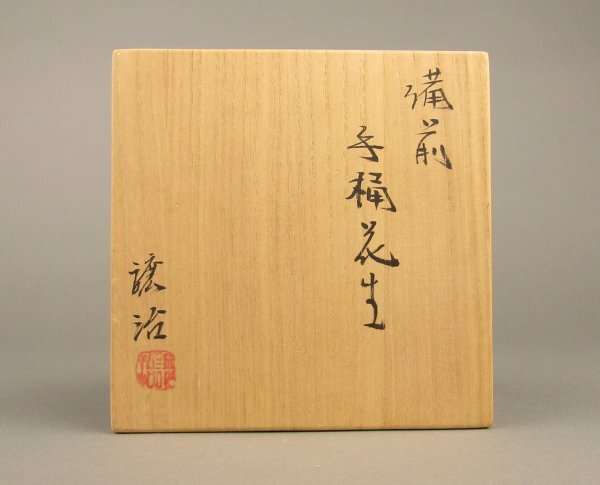 備前
手桶花生
譲治